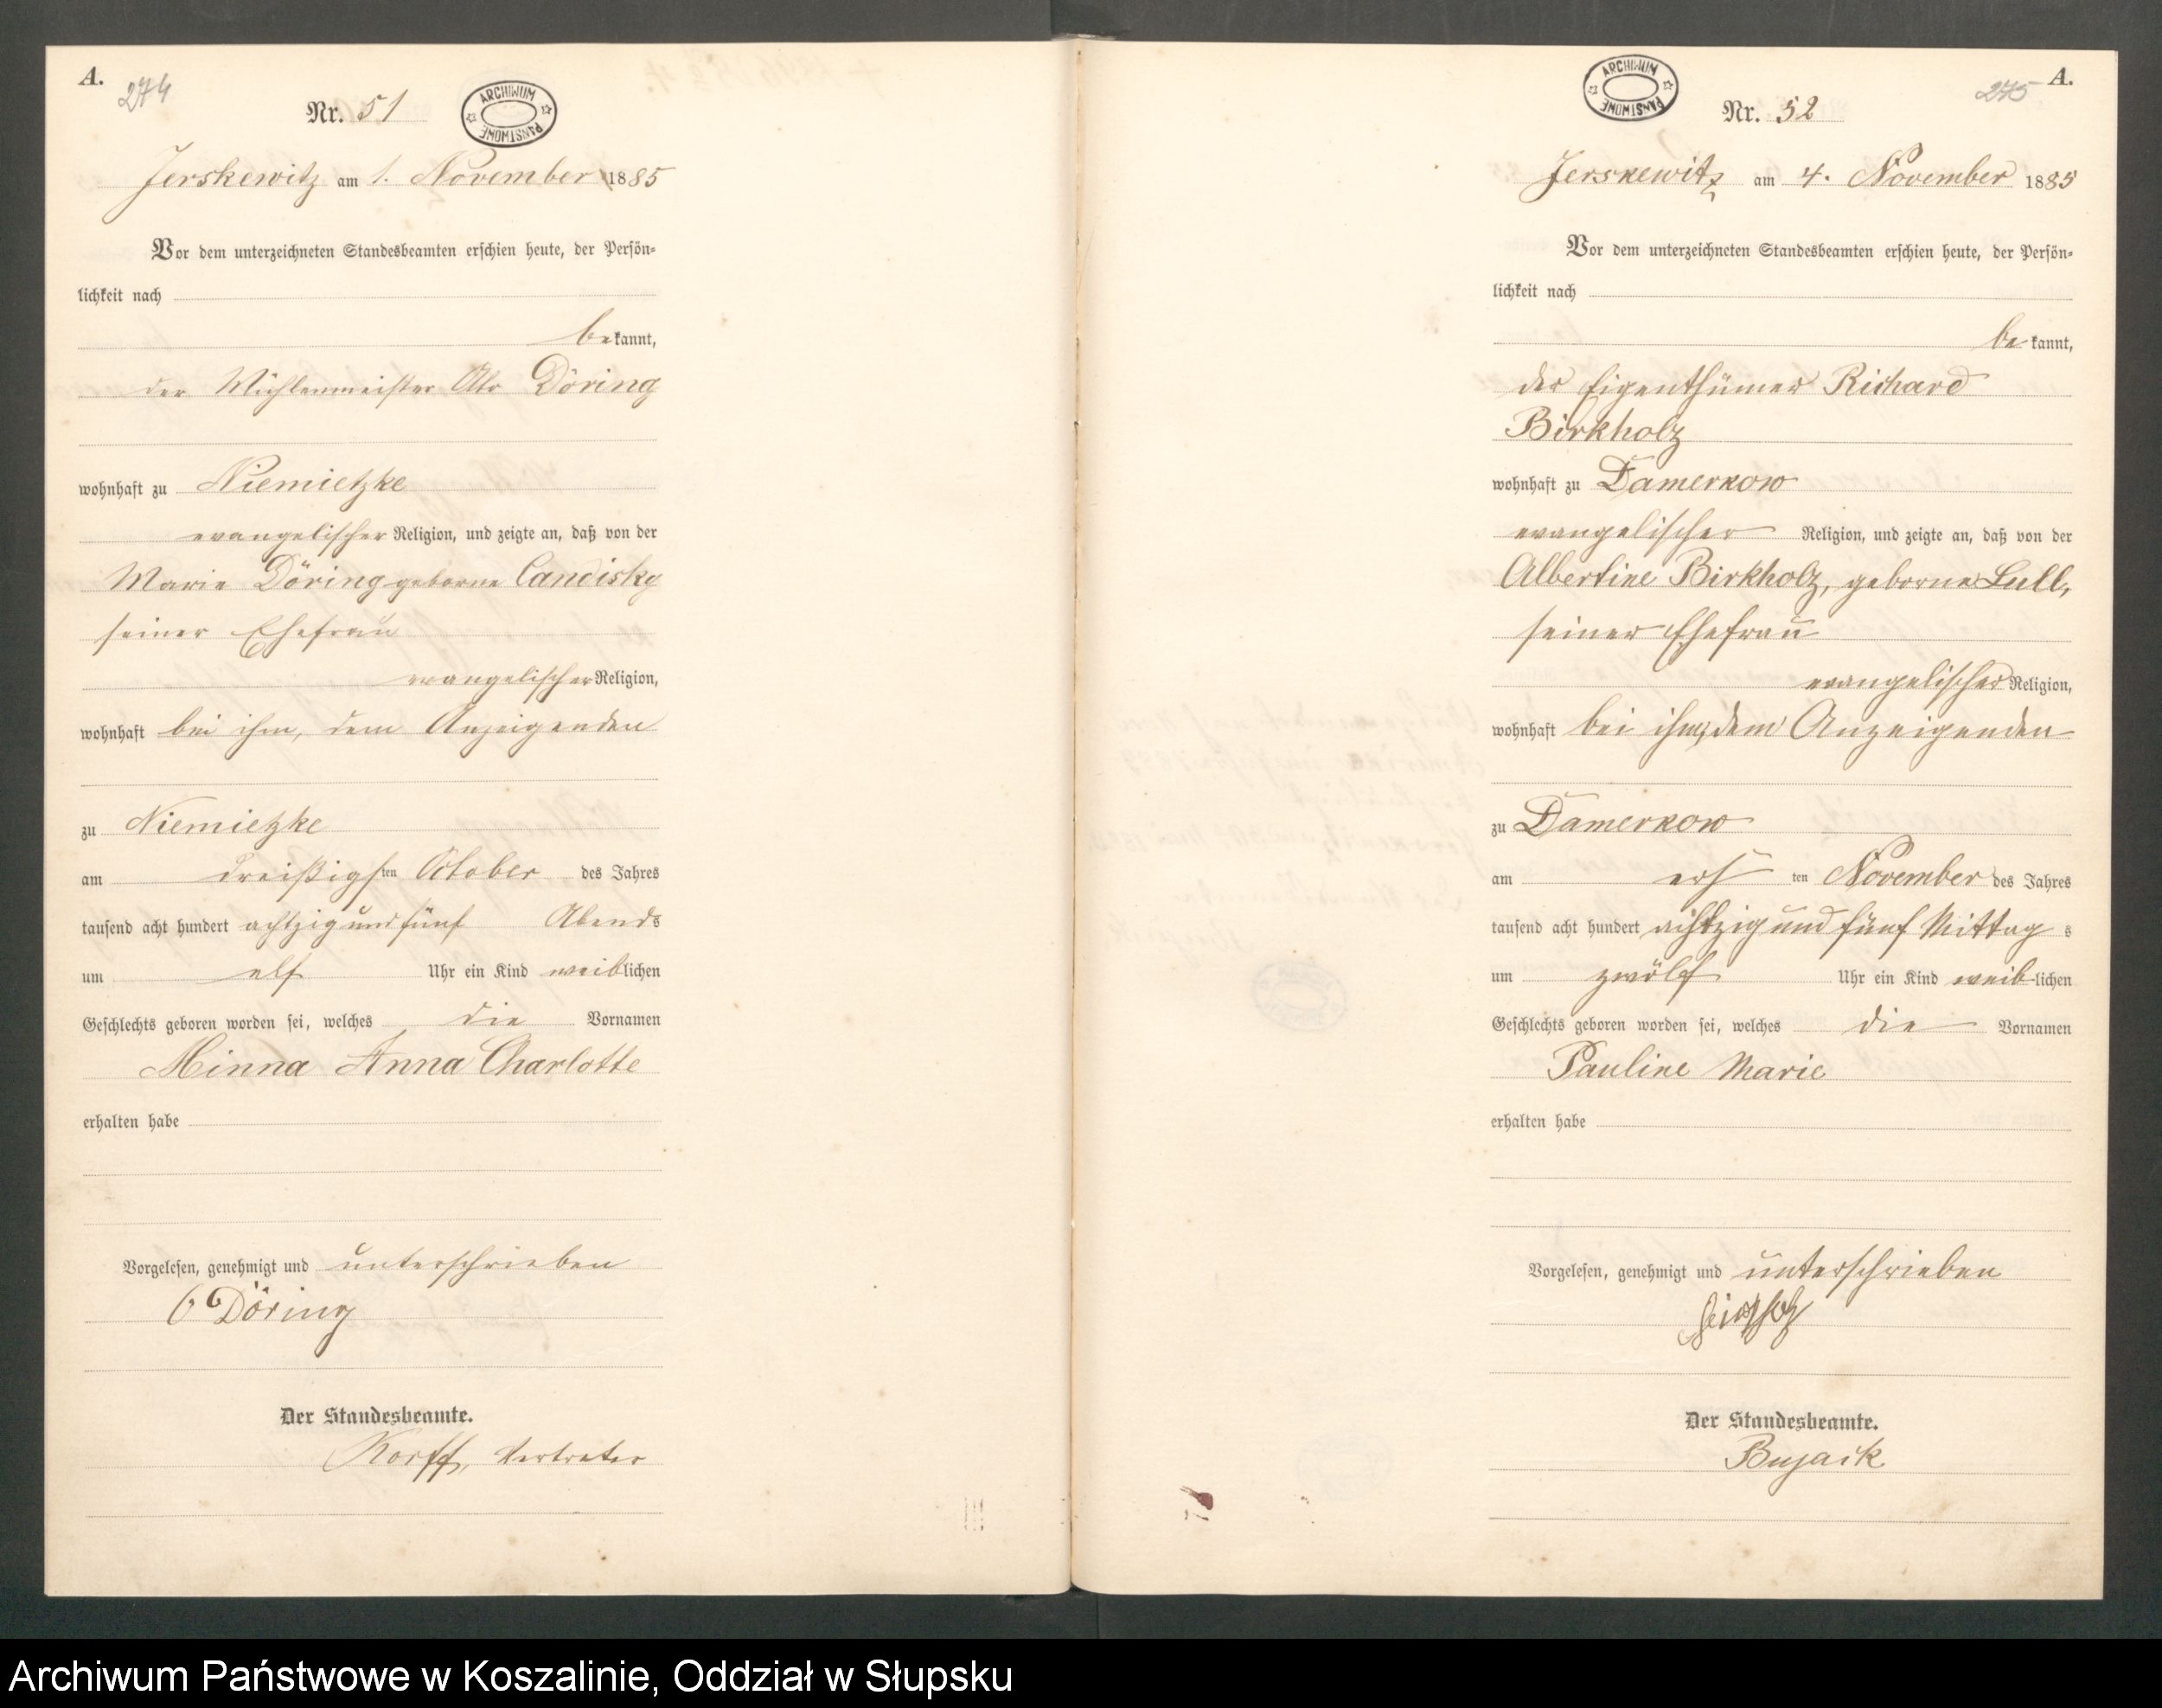 A.
274
Nr. 51
ARCHIWUM PAŃSTWOWE
Jerskewitz am 1. November 1885
Vor dem unterzeichneten Standesbeamten erschien heute, der Persön-
lichkeit nach
bekannt,
der Mühlenmeister Döring
wohnhaft zu Niemietzke
evangelischer Religion, und zeigte an, daß von der
Marie Döring geborne Candisky
seiner Ehefrau
evangelischer Religion,
wohnhaft bei ihm, dem Anzeigenden
zu Niemietzke
am dreißigsten October des Jahres
tausend acht hundert achtzig und fünf Abends
um elf Uhr ein Kind weiblichen
Geschlechts geboren worden sei, welches die Vornamen
Minna Anna Charlotte
erhalten habe
Vorgelesen, genehmigt und unterschrieben
Döring
Der Standesbeamte.
Korff, Vertreter
A.
275
ARCHIWUM PAŃSTWOWE
Nr. 52
Jerskewitz am 4. November 1885
Vor dem unterzeichneten Standesbeamten erschien heute, der Persön-
lichkeit nach
bekannt,
der Eigenthümer Richard
Birkholz
wohnhaft zu Damerkow
evangelischer Religion, und zeigte an, daß von der
Albertine Birkholz, geborne Lull,
seiner Ehefrau
evangelischer Religion,
wohnhaft bei ihm, dem Anzeigenden
zu Damerkow
am ersten November des Jahres
tausend acht hundert achtzig und fünf Mittags
um zwölf Uhr ein Kind weiblichen
Geschlechts geboren worden sei, welches die Vornamen
Pauline Marie
erhalten habe
Vorgelesen, genehmigt und unterschrieben
Der Standesbeamte.
Bujack
Archiwum Państwowe w Koszalinie, Oddział w Słupsku